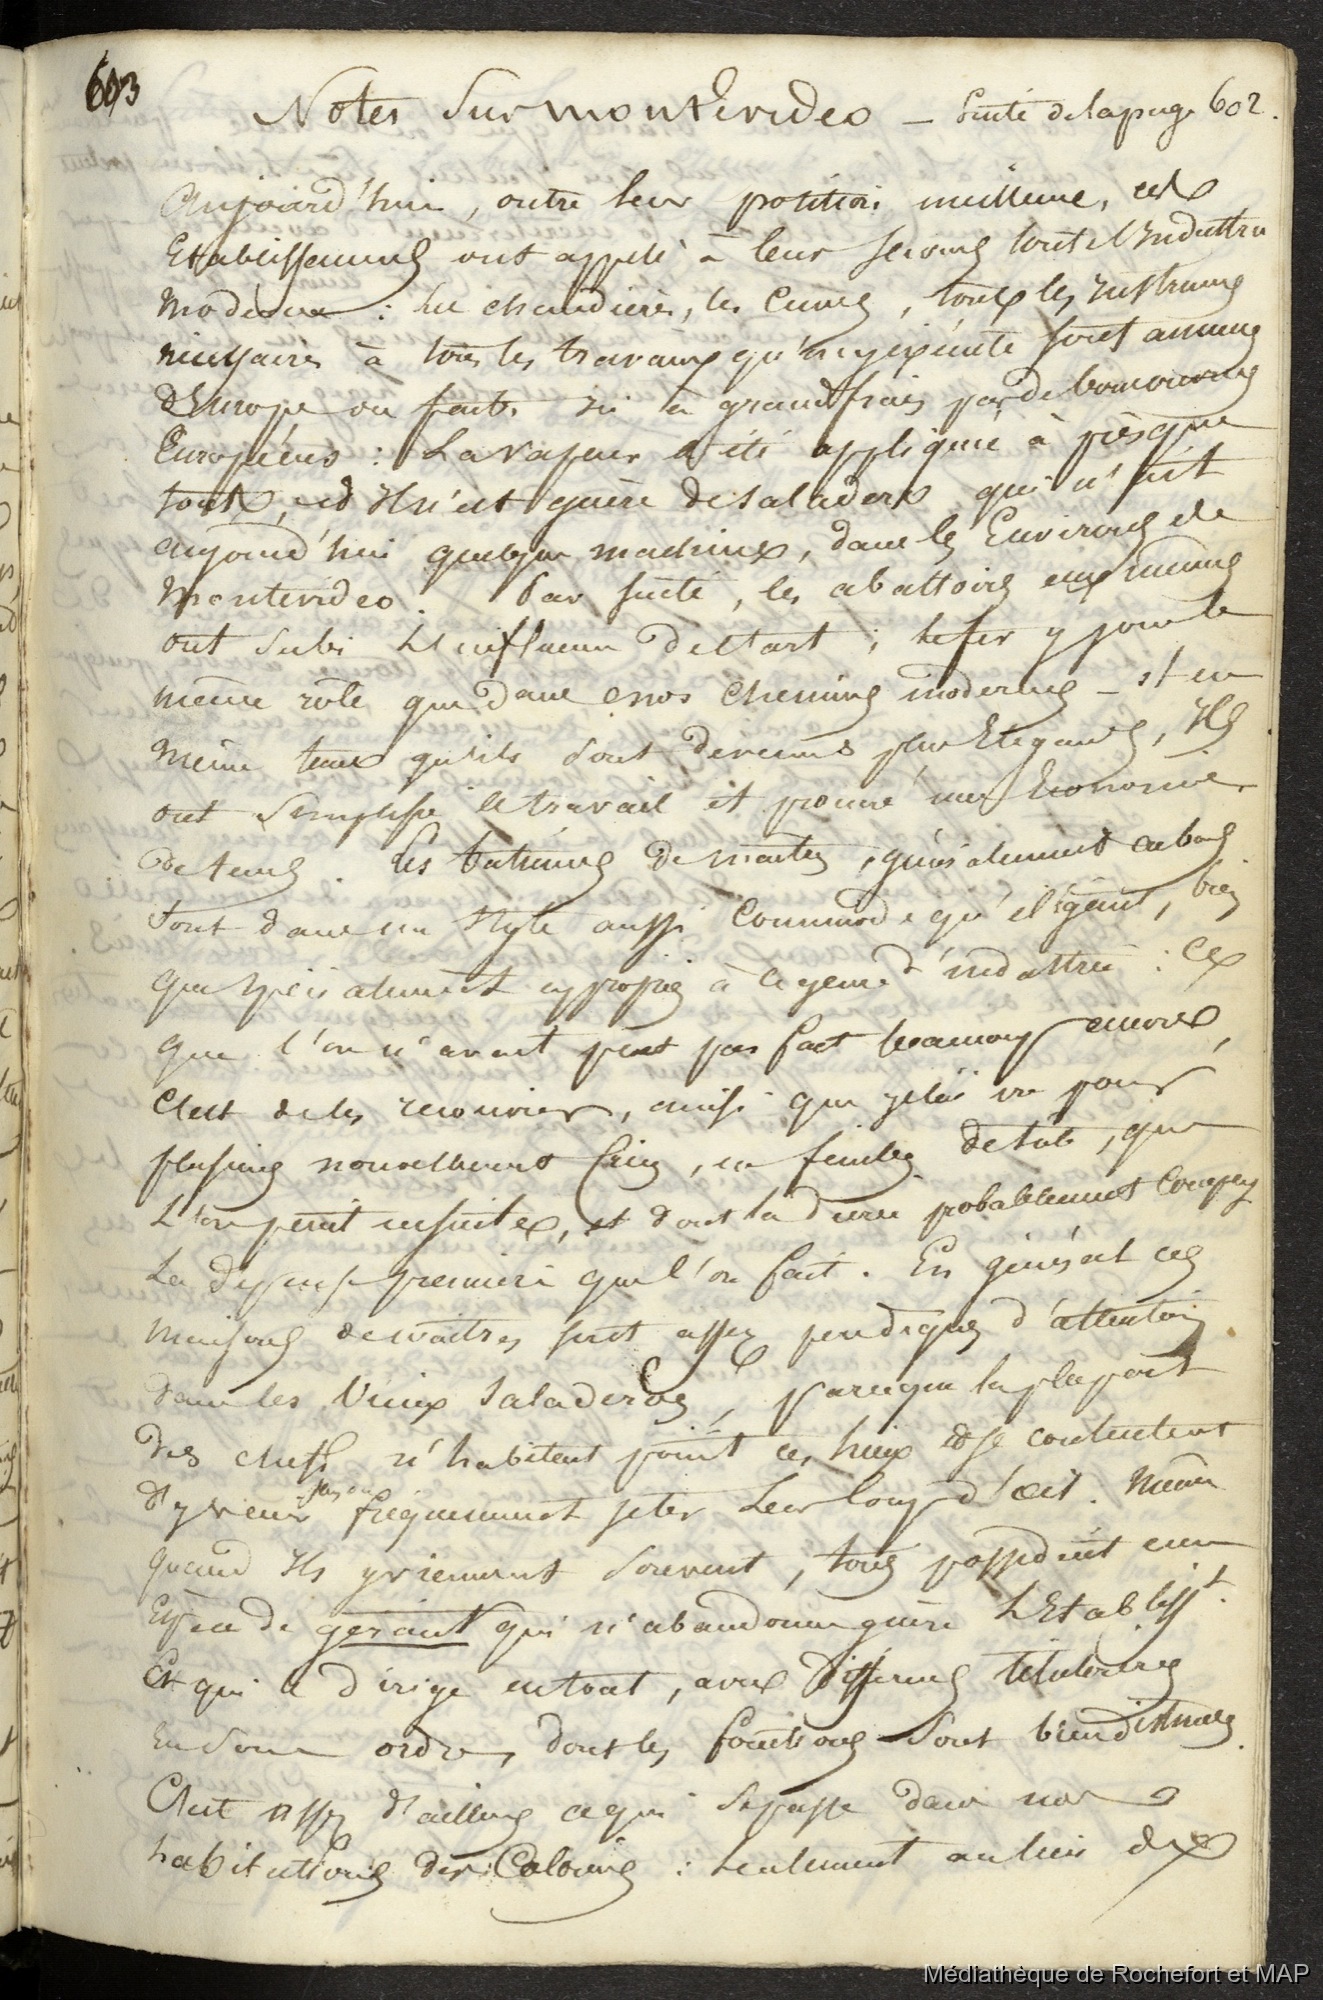 603
Notes Sur Montevideo — Suite de la page 602.
Aujourd'hui, outre leur position meilleure, ces
Etablissements ont appelé à leur secours toute l'Industrie
Moderne : les chaudières, les Cuves, tous les Instruments
nécessaires à tous les travaux qu'on y exécute sont amenés
d'Europe ou faits ici à grands frais par de bons ouvriers
Européens : La vapeur a été appliquée à presque
tout, et Il n'est guère de Saladeros qui n'ait
aujourd'hui quelque machine, dans les Environs de
Montevideo. Par suite, les abattoirs eux mêmes
ont subi L'influence de l'art ; le fer y joue le
même rôle que dans nos Chemins modernes — et en
même temps qu'ils sont devenus plus Elégants, Ils
ont simplifié le travail et procuré une Economie
de temps. Les batiments de maîtres, généralement au bas
sont dans un Style aussi Commode qu'élégant, bien
que spécialement approprié à ce genre d'industrie : Ce
que l'on n'avait peut pas fait beaucoup encore,
C'est de les recouvrir, ainsi que je l'ai vu pour
plusieurs nouvellement finis, en feuilles de tole, que
L'on peint ensuite, et dont la durée probablement Compense
La dépense première que l'on fait. En général ces
maisons de maîtres sont assez peu dignes d'attention
dans les Vieux Saladeros, parceque la plupart
des chefs n'habitent point ces lieux et se contentent
d'y venir fréquemment jeter Leur Coup d'œil. Même
quand Ils y viennent souvent, tous possèdent une
Espèce de gérant qui n'abandonne guère L'Etablisst.
Et qui le dirige en tout, avec différents titulaires
En sous ordre, dont les fonctions sont bien distinctes.
C'est assez d'ailleurs ce qui se passe dans nos
habitations des Colonies : seulement au lieu de
Médiathèque de Rochefort et MAP